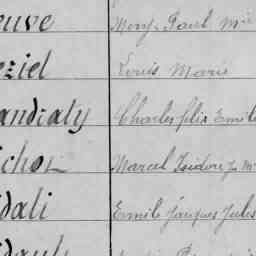 euve Mory Paul Mie
eziel Louis Marie
andraty Charles félix Emile
ichot Marcel Isidore J. M
idali Emile Jacques Jules